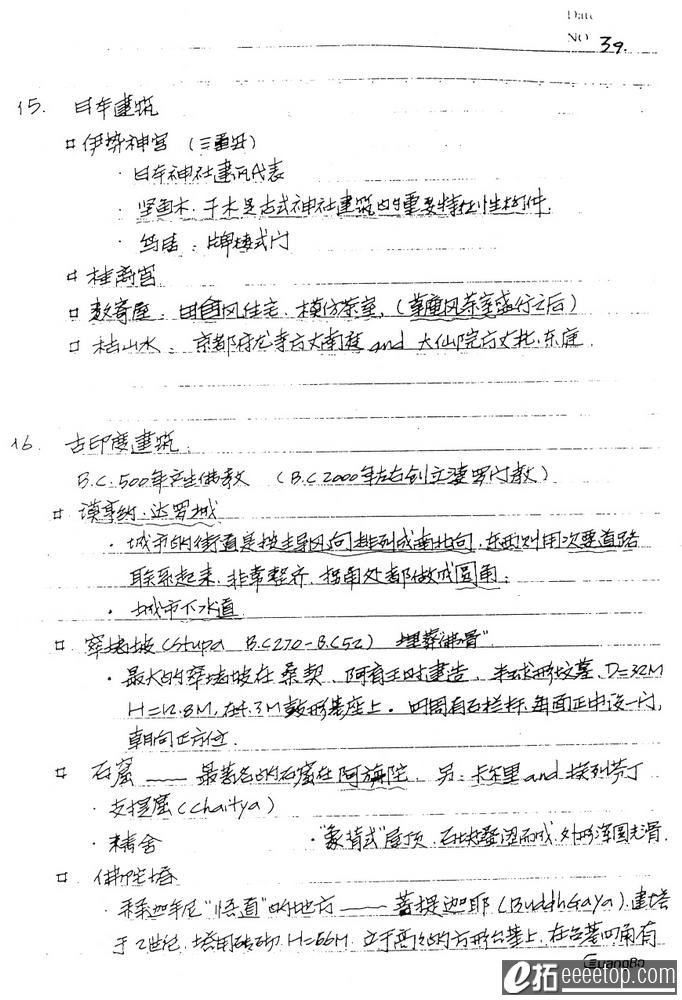 Date
NO 39.
15. 日本建筑
伊势神宫 (三重县)
· 日本神社建筑代表
· 坚鱼木、千木是古式神社建筑的重要特征性构件.
· 鸟居: 牌楼式门
桂离宫
数寄屋: 田园风住宅. 模仿茶室, (草庵风茶室盛行之后)
枯山水: 京都府龙寺方丈南庭 and 大仙院方丈北、东庭.
16. 古印度建筑.
B.C. 500年产生佛教 (B.C 2000年左右创立婆罗门教)
谟亨约·达罗城
· 城市的街道是按主导风向排列成南北向, 东西则用次要道路
联系起来, 非常整齐, 拐角处都做成圆角;
· 城市下水道
窣堵坡 (Stupa B.C270-B.C52) 埋葬佛骨"
· 最大的窣堵坡在桑契、阿育王时建造、半球形坟墓、D=32M
H=12.8M, 在4.3M鼓形基座上. 四周有石栏杆, 每面正中设一门,
朝向正方位.
石窟 —— 最著名的石窟在阿旃陀. 另: 卡尔里 and 埃列芬丁
· 支提窟 (chaitya)
· 精舍 · "象背式"屋顶, 石块叠涩而成, 外形浑圆光滑.
佛陀塔
· 释迦牟尼"悟道"的地方 —— 菩提迦耶 (BuddhGaya). 建塔
于2世纪. 塔用砖砌, H=55M. 立于高大的方形台基上, 在台基四角有
GuangBo
e拓 eeeetop.com